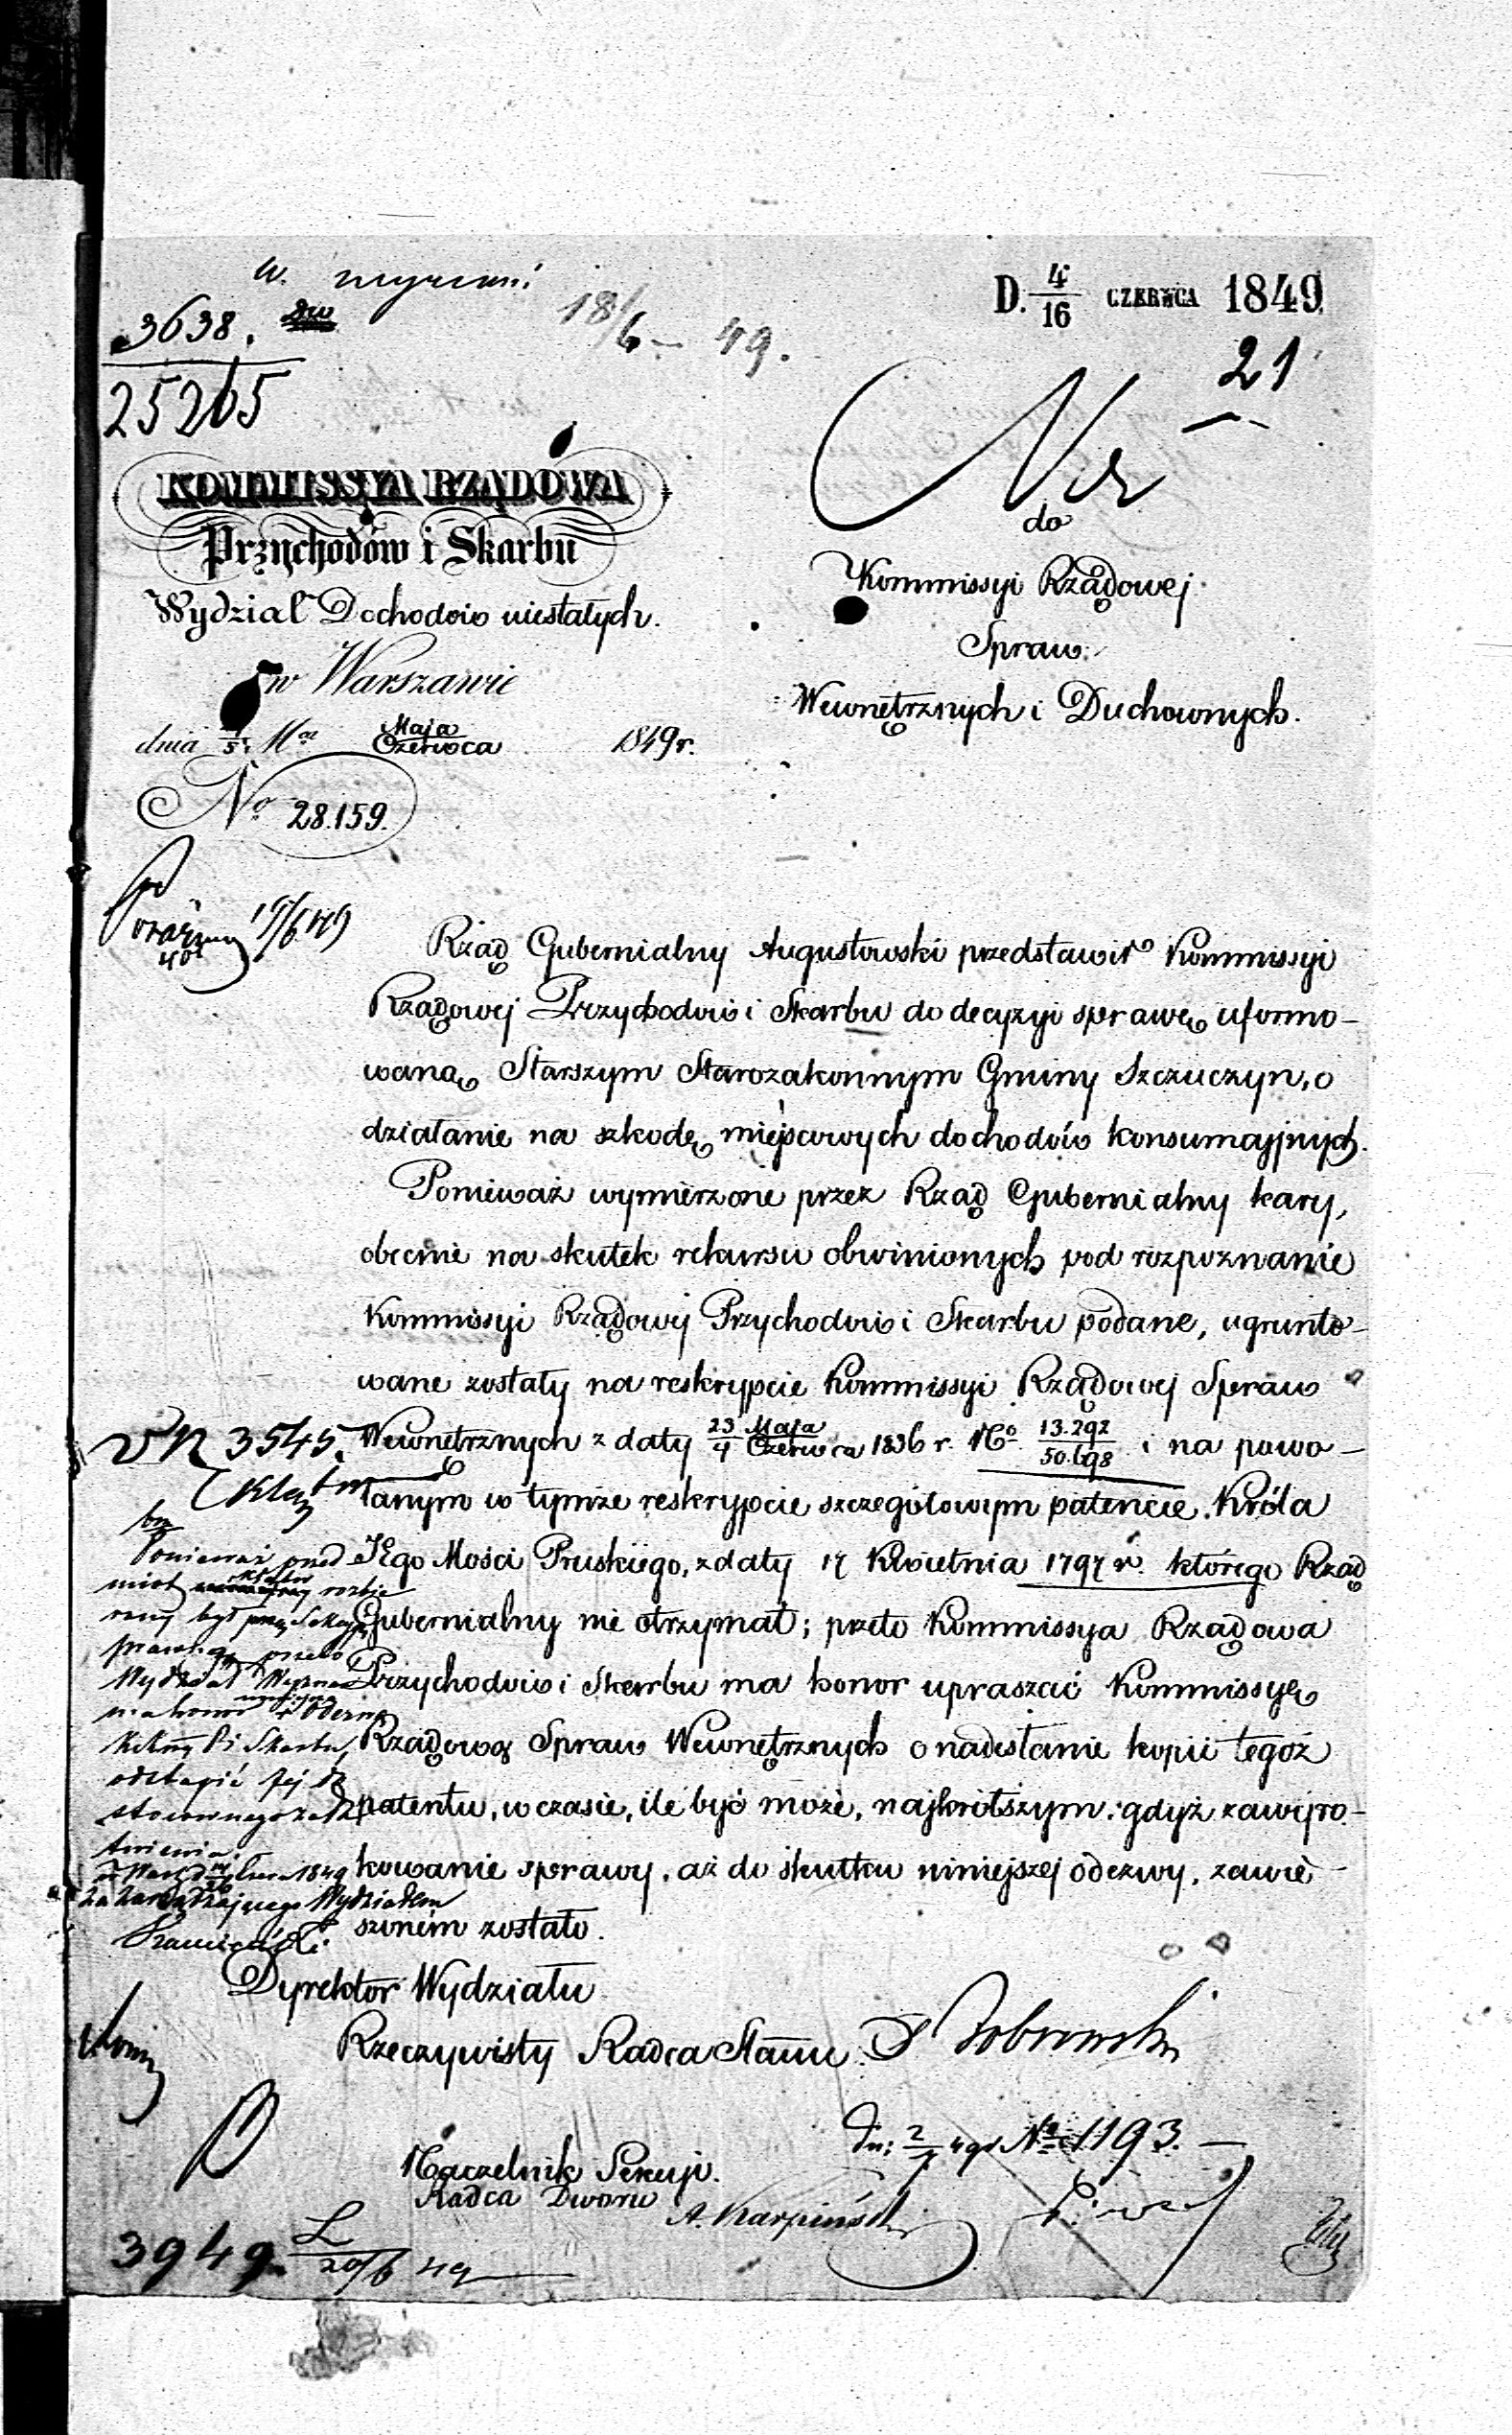 D. 4/16 CZERWCA 1849
18/6 – 49.
3638.
25265
21
KOMMISSYA RZĄDOWA
Przychodów i Skarbu
Wydział Dochodów niestałych.
w Warszawie
dnia Maja/Czerwca 1849 r.
No 28.159.
do
Kommissyi Rządowej
Spraw
Wewnętrznych i Duchownych.
Rząd Gubernialny Augustowski przedstawił Kommissyi
Rządowej Przychodów i Skarbu do decyzyi sprawę uformo-
waną Starszym Starozakonnym Gminy Szczuczyn, o
działanie na szkodę miejscowych dochodów konsumcyjnych.
Ponieważ wymierzone przez Rząd Gubernialny kary,
obecnie na skutek rekursu obwinionych pod rozpoznanie
Kommissyi Rządowej Przychodów i Skarbu podane, ugrunto-
wane zostały na reskrypcie Kommissyi Rządowej Spraw
Wewnętrznych z daty 23/4 Maja/Czerwca 1836 r. No 13.292/50.698 i na powo-
łanym w tymże reskrypcie szczegółowym patencie Króla
JEgo Mości Pruskiego, z daty 17 Kwietnia 1797 r. którego Rząd
Gubernialny nie otrzymał; przeto Kommissya Rządowa
Przychodów i Skarbu ma honor upraszać Kommissyę
Rządową Spraw Wewnętrznych o nadesłanie kopii tegoż
patentu, w czasie, ile być może, najkrótszym, gdyż zawyro-
kowanie sprawy, aż do skutku niniejszej odezwy, zawie-
szoném zostało.
3545.
Ponieważ przed
miot rozbie
rany był przez Sekcyę
przeto
Wydział Wyzna
ma honor
odstąpić Jej do
stosownego zała
twienia.
Zarządzającego Wydziałem
Dyrektor Wydziału
Rzeczywisty Radca Stanu
Naczelnik Sekcyi.
Radca Dworu
A. Karpiński
No 1193.
3949.
20/6 49